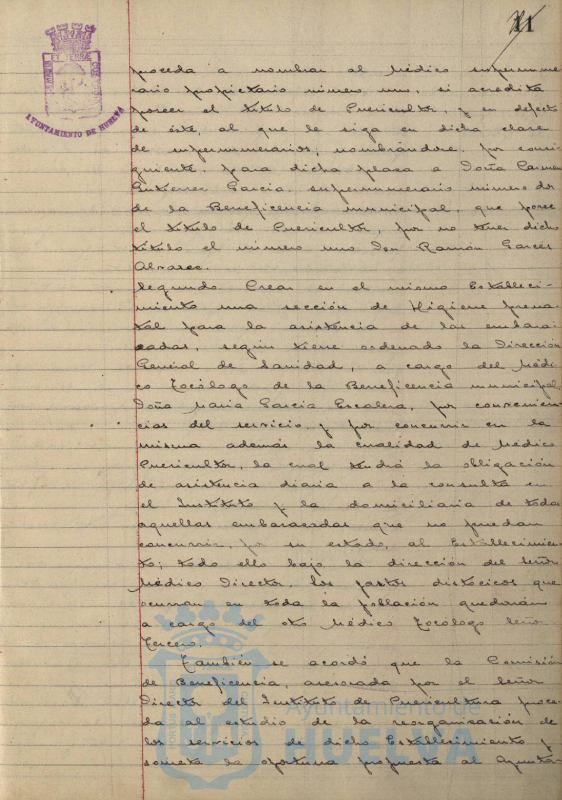 11
AYUNTAMIENTO DE HUELVA
proceda a nombrar al Médico supernume
rario propietario número uno, si acredita
poseer el título de Puericultor, y en defecto
de éste, al que le siga en dicha clase
de supernumerarios, nombrándose, por consi
guiente, para dicha plaza a Doña Carmen
Gutierrez Garcia, supernumerario número dos
de la Beneficencia municipal, que posee
el título de Puericultor, por no tener dicho
título el número uno Don Ramón Garcés
Alvarez.
Segundo Crear en el mismo Estableci-
miento una sección de Higiene prena
tal para la asistencia de las embara
zadas, según tiene ordenado la Dirección
General de Sanidad, a cargo del Médi
co Tocólogo de la Beneficencia municipal,
Doña Maria Garcia Escalera, por convenien
cias del servicio, y por concurrir en la
misma además la cualidad de Médico
Puericultor, la cual tendrá la obligación
de asistencia diaria a la consulta en
el Instituto y la domiciliaria de todas
aquellas embarazadas que no puedan
concurrir, por su estado, al Establecimien
to; todo ello bajo la dirección del señor
Médico Director. Los partos distócicos que
ocurran en toda la población quedarán
a cargo del otro Médico Tocólogo señor
Tercero.
También se acordó que la Comisión
de Beneficencia, asesorada por el señor
Director del Instituto de Puericultura proce
da al estudio de la reorganización de
los servicios de dicho Establecimiento y
someta la oportuna propuesta al Ayunta
Ayuntamiento de
HUELVA